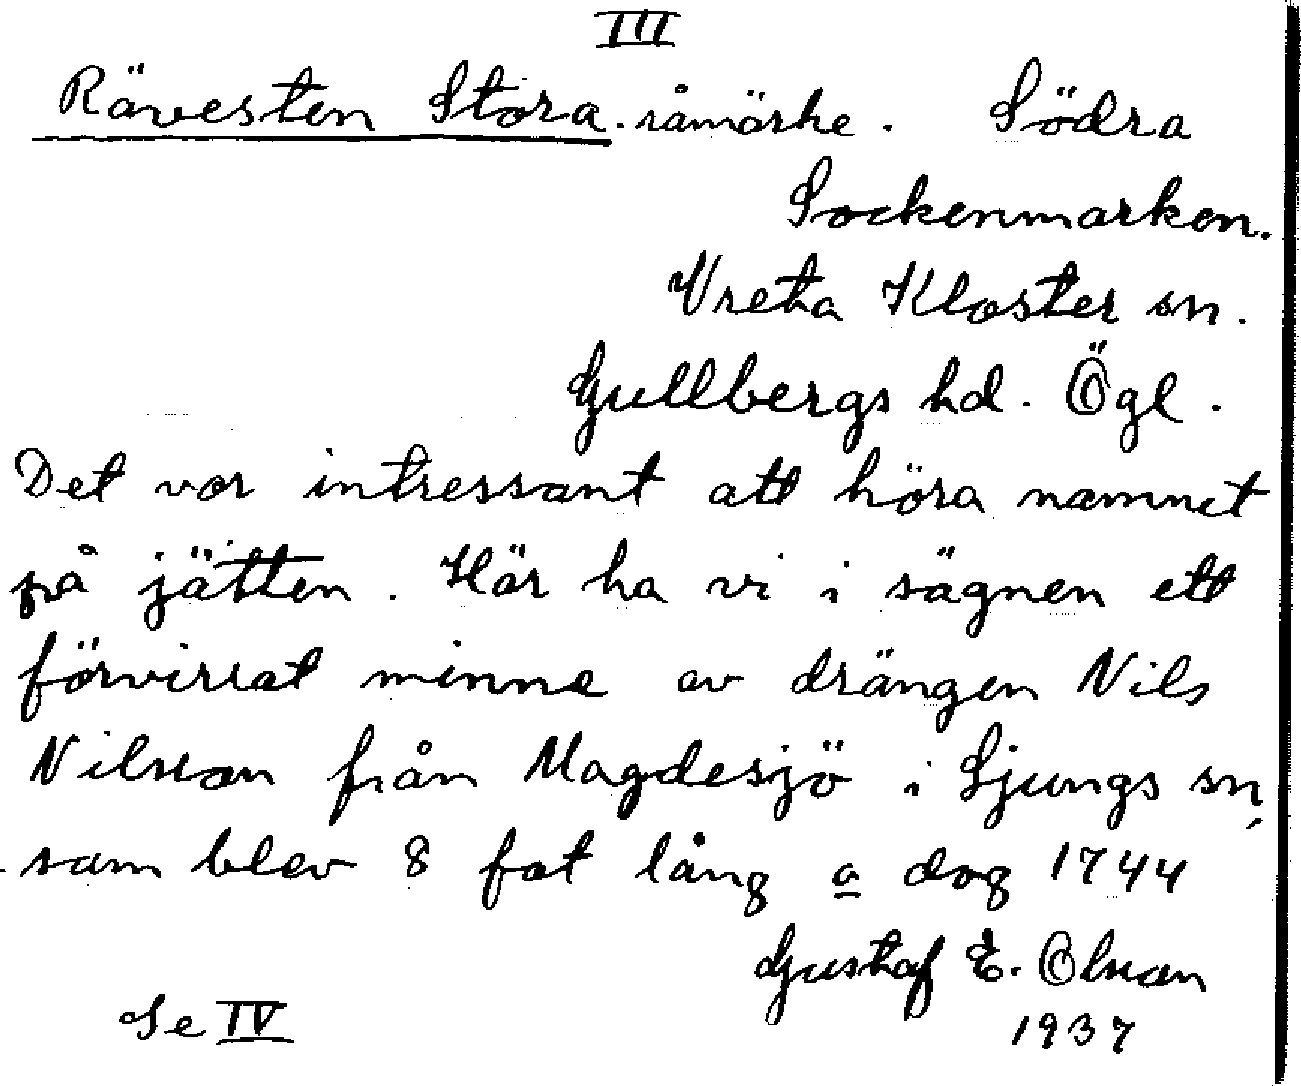 III
Rävesten Stora. råmärke. Södra
Sockenmarken.
Vreta Kloster sn.
Gullbergs hd. Ögl.
Det var intressant att höra namnet
på jätten. Här ha vi i sägnen ett
förvirrat minne av drängen Nils
Nilsson från Magdesjö i Ljungs sn,
som blev 8 fot lång o dog 1744
Gustaf E. Olsson
1937
Se IV